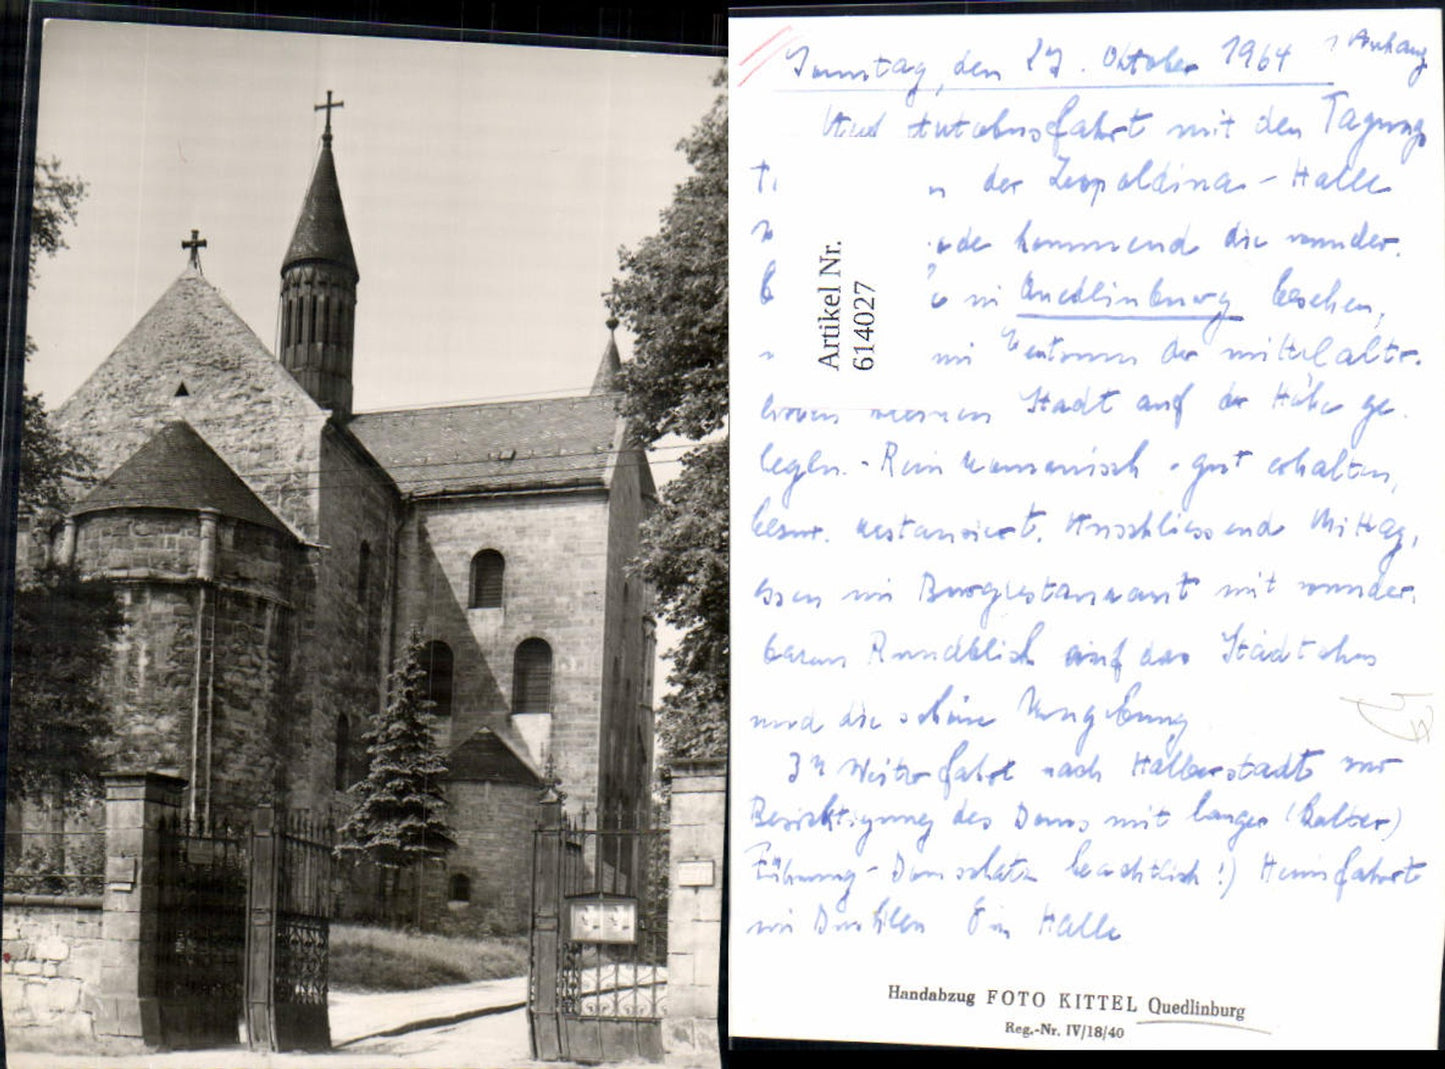 Sonntag, den 27. Oktober 1964 1 Anhang
Autobusfahrt mit den Tagungs
der Leopoldina - Halle
kommend die wunder-
in Quedlinburg besehen,
im Zentrum der mittelalter-
Stadt auf der Höhe ge-
legen. - Rein romanisch - gut erhalten,
bezw. restauriert. Anschliessend Mittag-
essen im Burgrestaurant mit wunder-
barem Rundblick auf das Städtchen
und die schöne Umgebung
Weiterfahrt nach Halberstadt zur
Besichtigung des Doms mit langer (kalter)
Führung - Domschatz beachtlich!) Heimfahrt
im Dunklen Halle
Artikel Nr.
614027
Handabzug FOTO KITTEL Quedlinburg
Reg.-Nr. IV/18/40